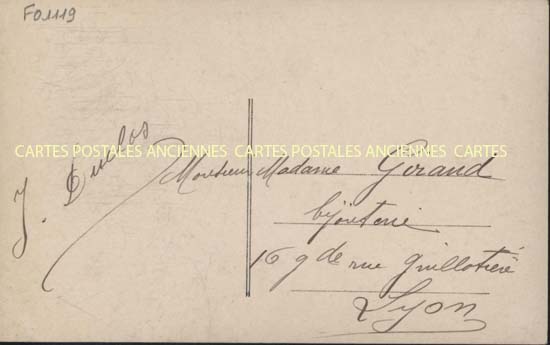 F01119
J. Duclos
CARTES POSTALES ANCIENNES CARTES POSTALES ANCIENNES CARTES
Monsieur Madame Giraud
bijouterie
16 gde rue guillotière
Lyon